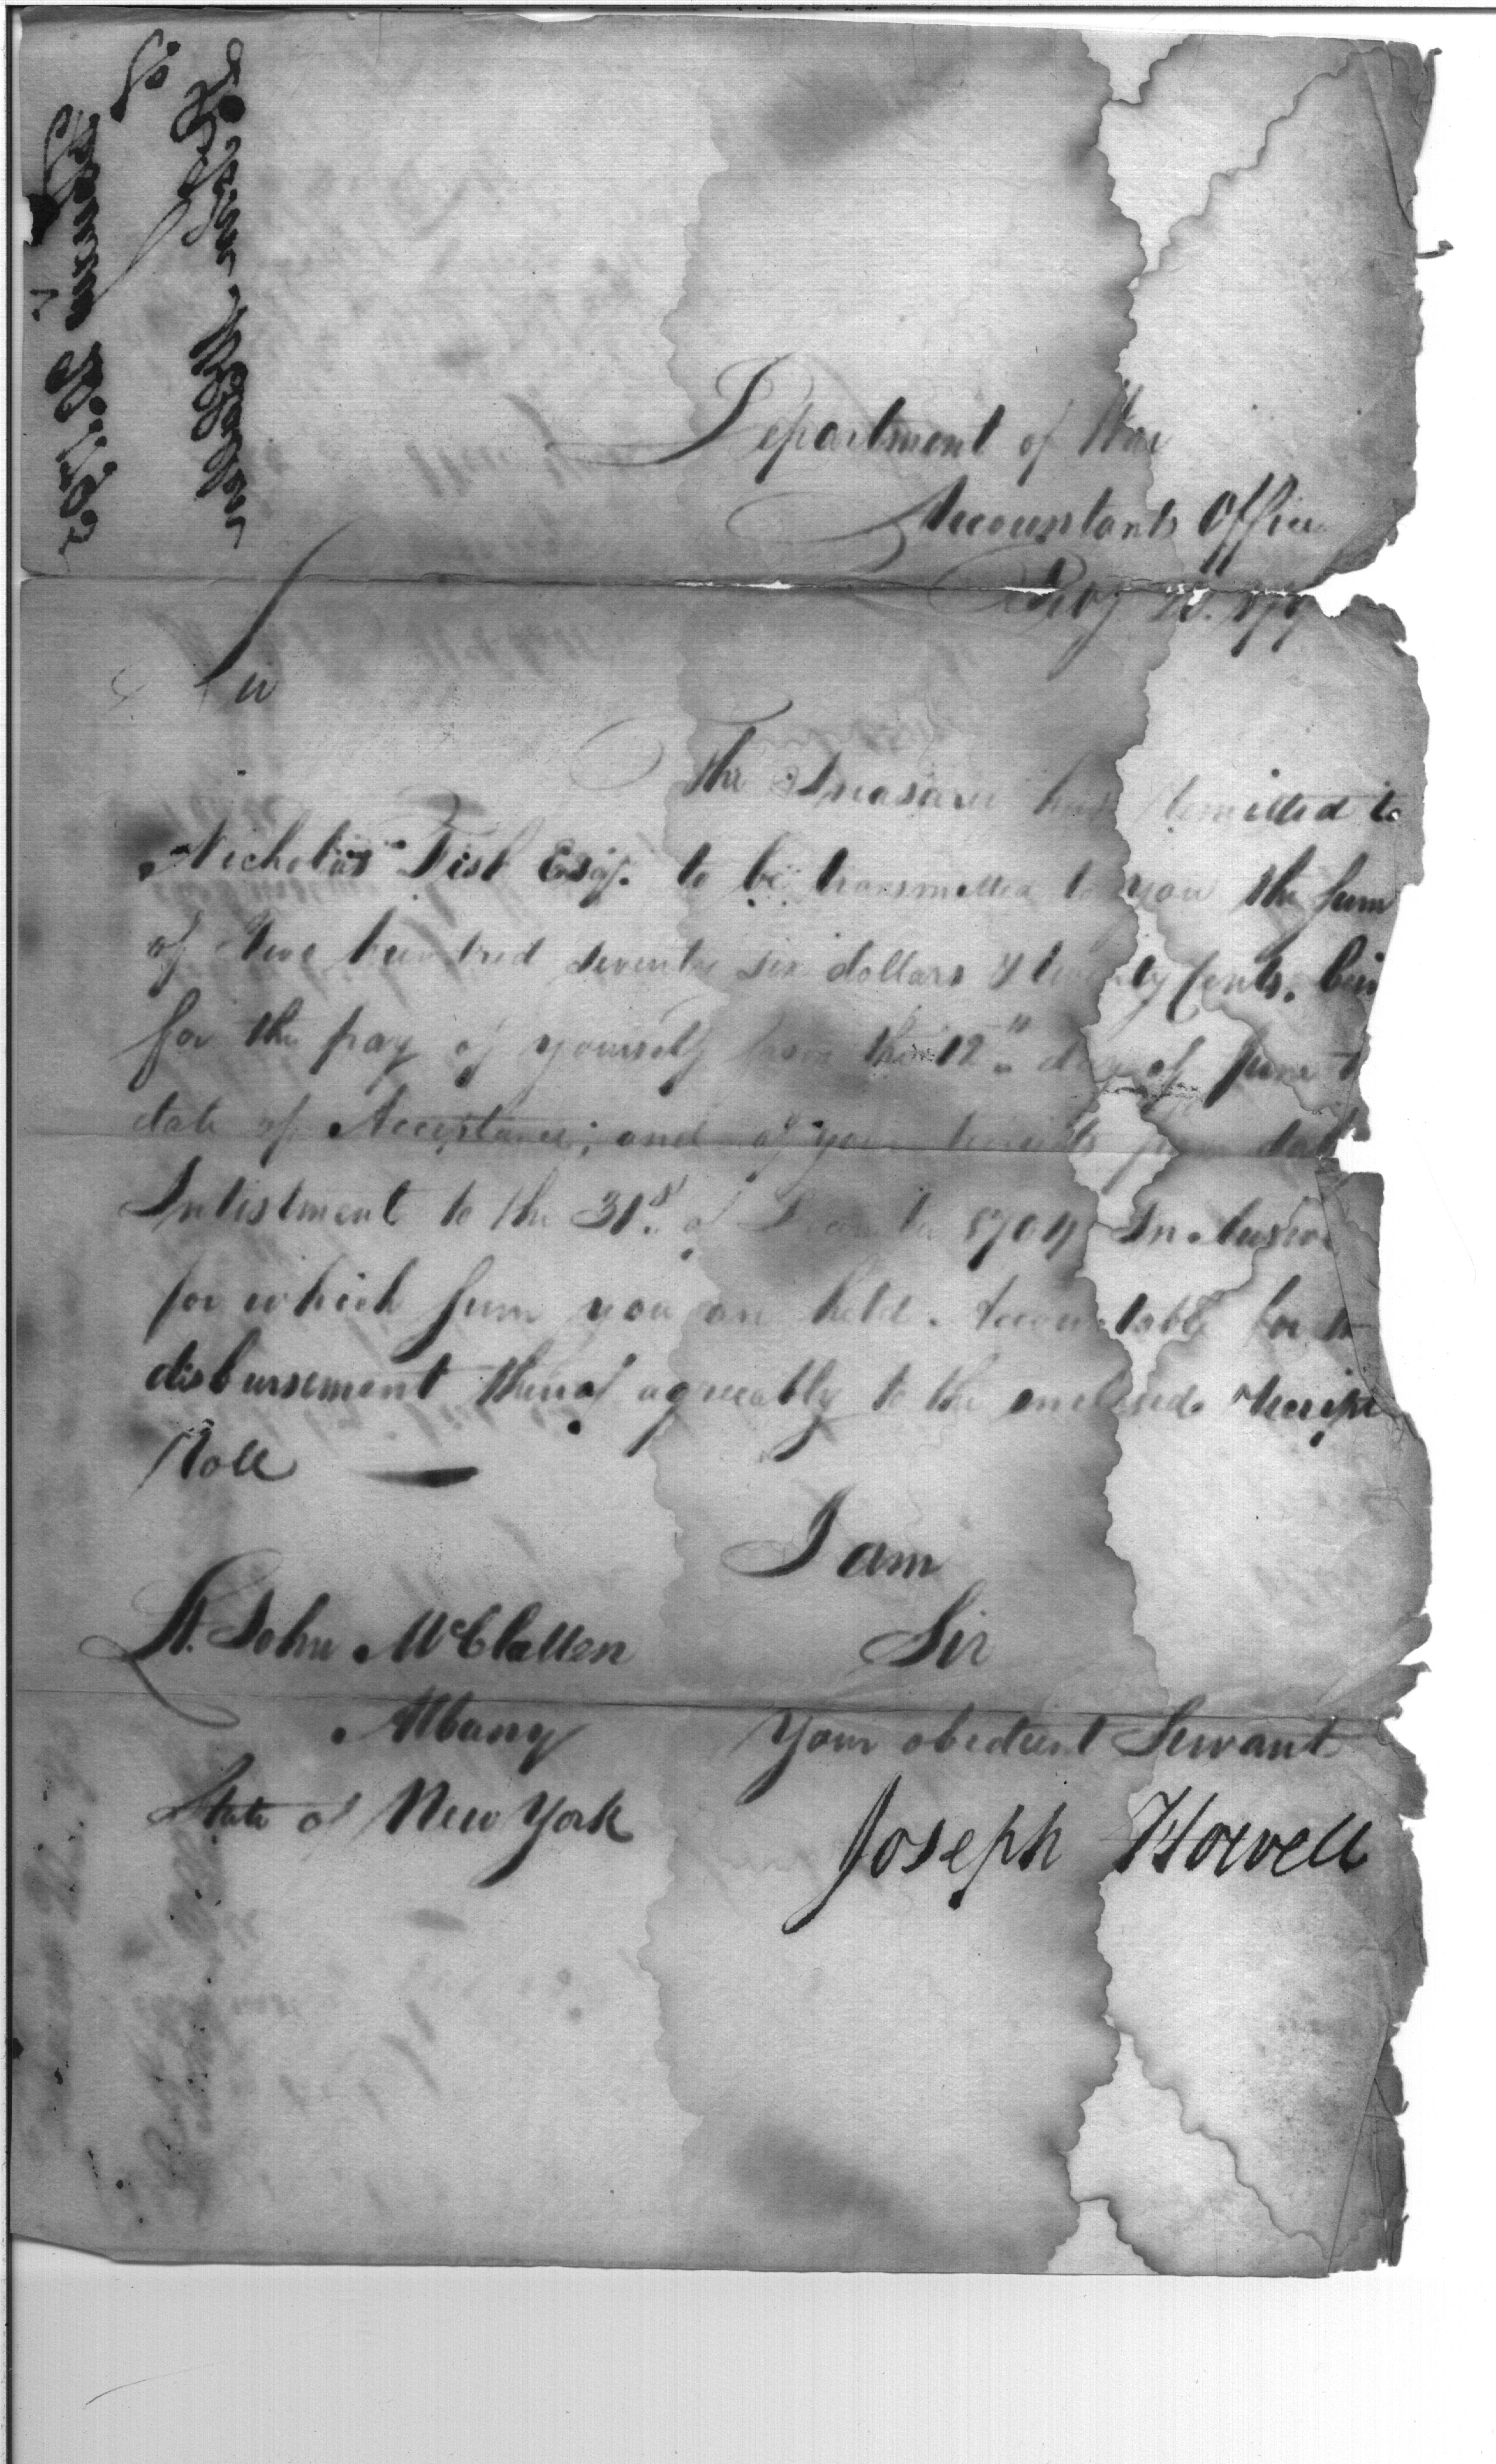 Department of War
Accountants Office
Sir
The Treasurer has Remitted to
Nicholas Fish Esqr. to be transmitted to you the sum
of two hundred seventy six dollars & twenty Cents. bein
for the pay of yourself from the 12th day of June t
date of Acceptance; and of your recruits from date
Inlistment to the 31st of December 1794 Inclusive
for which sum you are held Accountable for th
disbursement thereof agreeably to the enclosed Receipt
Roll
I am
Lt. John McClallen Sir
Albany your obedient Servant
State of New York Joseph Howell